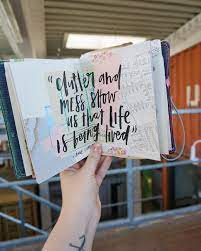 "clutter and
mess show
us that life
is being lived"